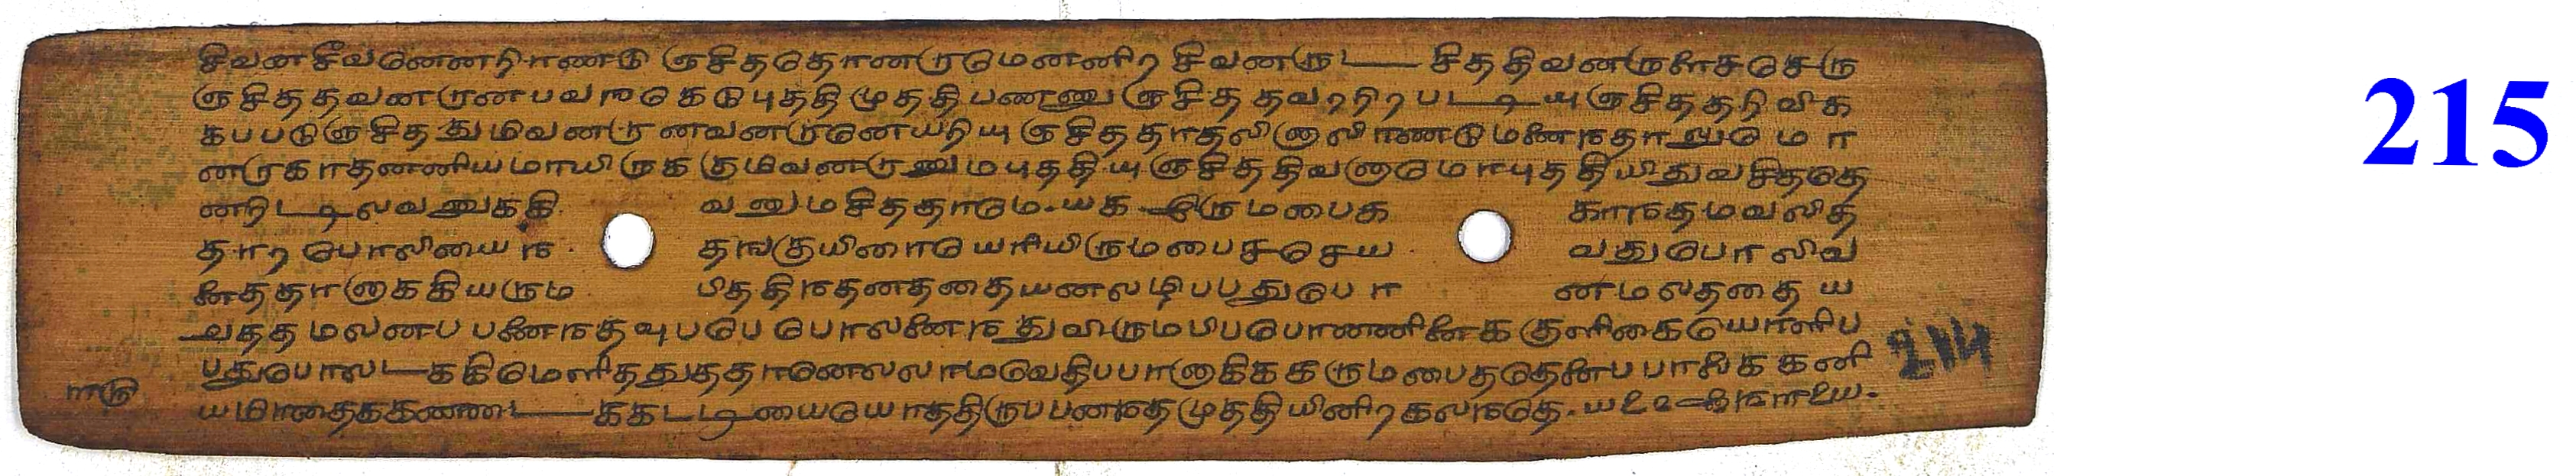 சிவன சீவனெனறிரணடு ஞசிததொனருமெனனிற சிவனருட சிததிவனருளசெசரு
ஞசிததவனருனபவஙகெடுபுததிமுததிபணணு ஞசிததவரநிரபடடியு ஞசிததறிவிக
கபபடுஞசிததுமிவனருனவனருனெயறியு ஞசிததாதலினாலிரணடுமணைநதாலுமொ
னருகாதனனியமாயிருககுமிவனருனுமபுததியுஞசிததிவனுமொபுததியிதுவசிததெ
னறிடடிலவனுககி வனுமசிததாமெ-யக இருமபைக காநதமவலித
தாரபொலியைந தஙகுயினாயெரியிருமபைசசெய வதுபொலிவ
னைததானாககியரும பிததிநதனததையனலழிபபதுபொ னமலததைய
வததமலனபபனைநதவுபபெபொலணைநதுவிருமபிபபொணணினைககுளிகையொளிப
பதுபொலடககிமெளிததுததானெலலாமவெதிபபானாகிககருமபைததெனைபபாலைககனி
யமிரதைககணடககடடியையொததிருபபனநதமுததியினிறகலநதெ-ய
ாரு
214
215